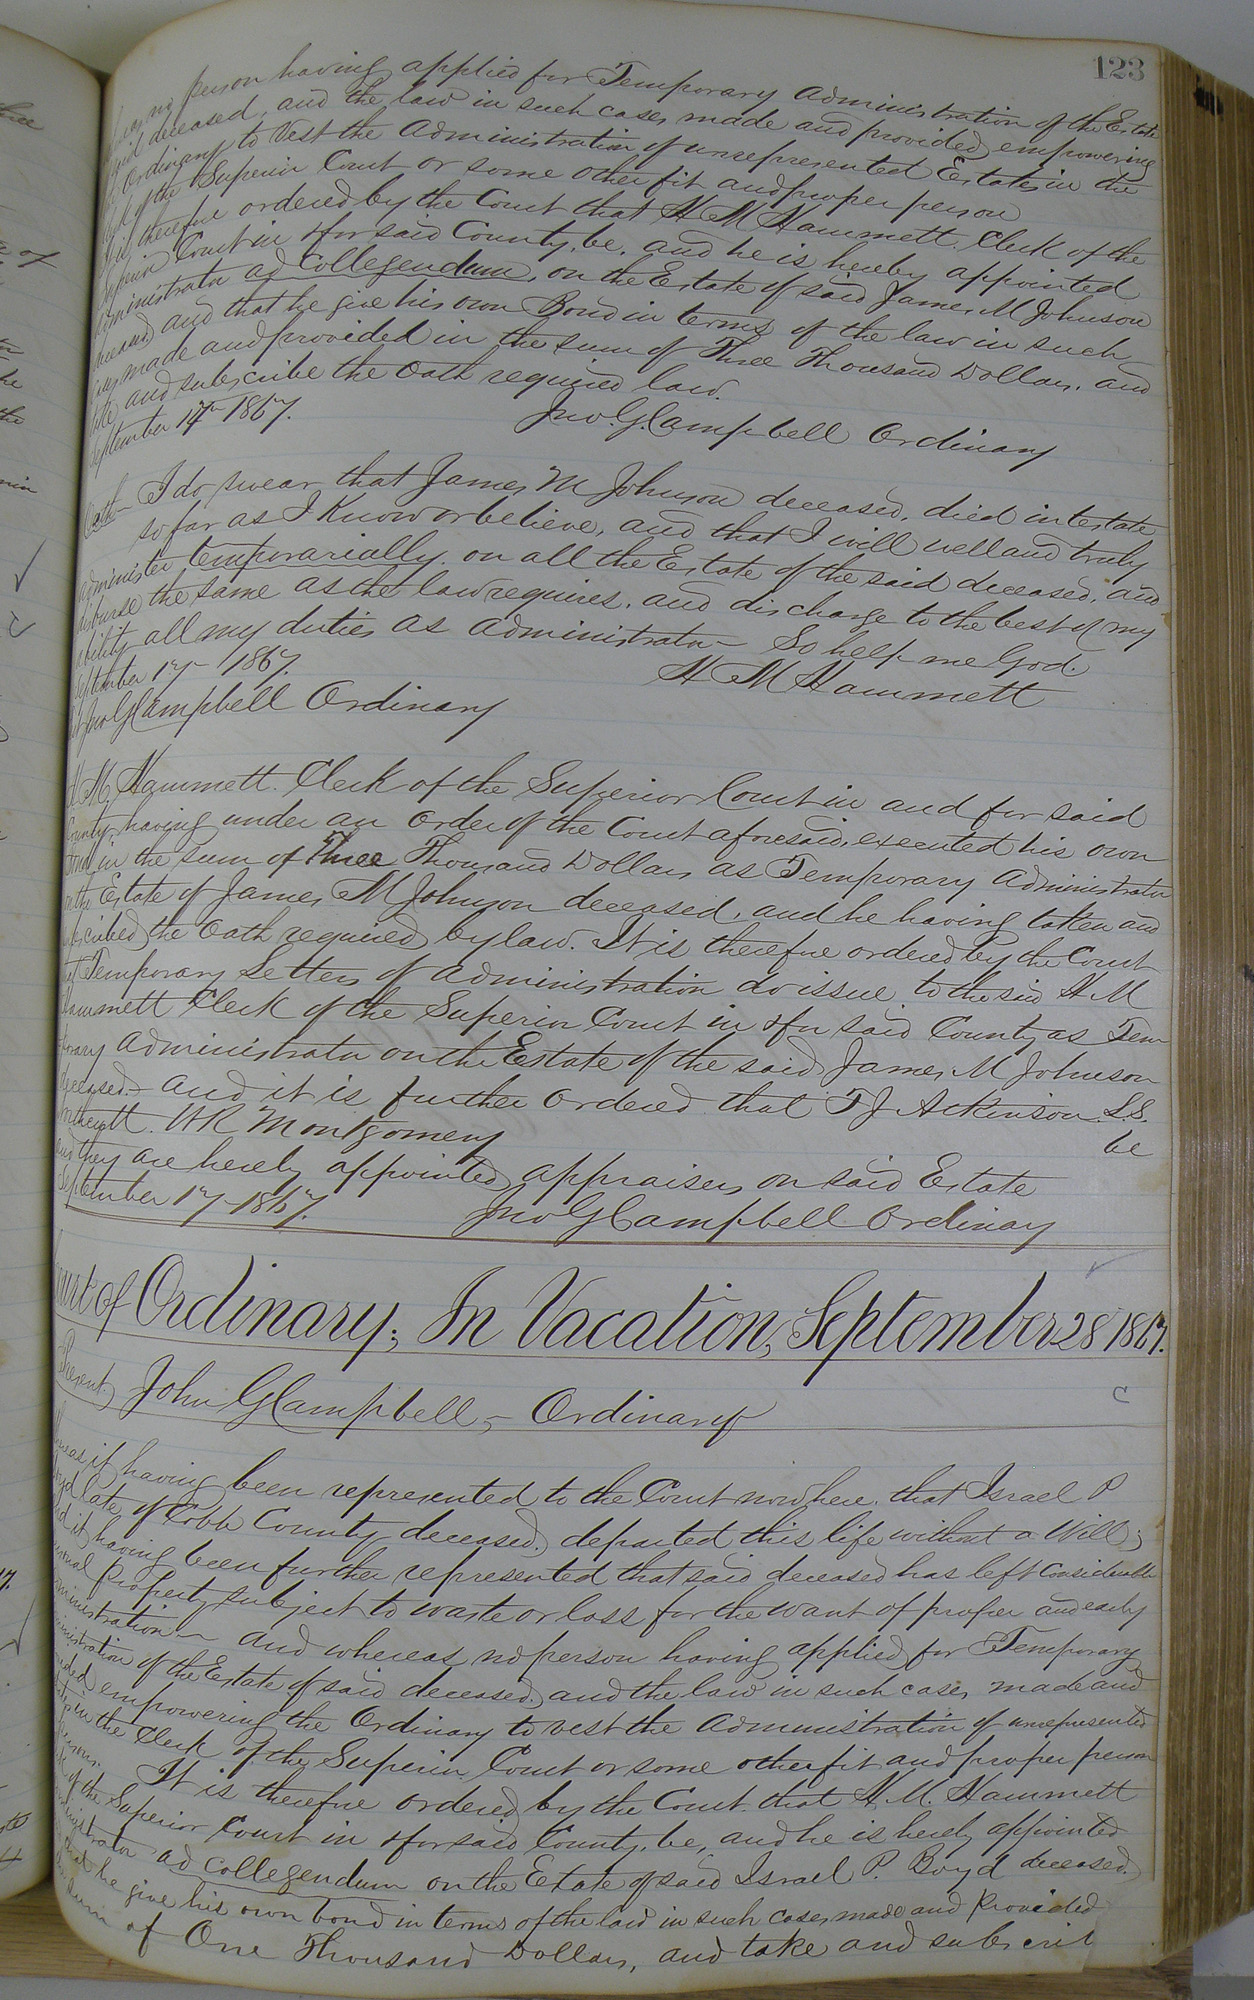 123
no person having applied for Temporary administration of the Estate
said deceased, and the law in such cases made and provided, empowering
Ordinary to Vest the administration of unrepresented Estates in the
of the Superior Court or some other fit and proper person
It is therefore ordered by the Court that H M Hammett Clerk of the
Superior Court in & for said County, be, and he is hereby appointed
administrator ad Collegendum, on the Estate of said James M Johnson
deceased, and that he give his own Bond in terms of the law in such
cases made and provided in the sum of Three Thousand Dollars, and
take and subscribe the Oath required law.
September 17th 1867. Jno. G. Campbell Ordinary
Oath – I do swear that James M Johnson deceased, died intestate
so far as I Know or believe, and that I will well and truly
administer temporarially on all the Estate of the said deceased, and
disburse the same as the law requires, and discharge to the best of my
ability all my duties as administrator – So help me God.
September 17 – 1867. H M Hammett
Jno G Campbell Ordinary
H M Hammett Clerk of the Superior Court in and for said
County, having under an order of the Court aforesaid, executed his own
Bond in the sum of Three Thousand Dollars as Temporary administrator
on the Estate of James M Johnson deceased, and he having taken and
subscribed the Oath required by law. It is therefore ordered by the Court
that Temporary Letters of administration do issue to the said H M
Hammett Clerk of the Superior Court in & for said County as Tem
porary administrator on the Estate of the said James M Johnson
deceased – and it is further ordered that T J Atkinson S.S.
W R Montgomery be
and they are hereby appointed appraisers on said Estate
September 17 – 1867. Jno G Campbell Ordinary
Court of Ordinary; In Vacation, September 28 1867.
Present, John G Campbell, – Ordinary
C
Whereas it having been represented to the Court now here, that Israel P
Boyd late of Cobb County deceased, departed this life without a Will;
and it having been further represented that said deceased has left considerable
personal property subject to waste or loss for the want of proper and early
administration – and whereas no person having applied for Temporary
administration of the Estate of said deceased, and the law in such cases made and
provided empowering the Ordinary to vest the administration of unrepresented
Estates in the Clerk of the Superior Court or some other fit and proper person
It is therefore ordered by the Court that H. M. Hammett
Clerk of the Superior Court in & for said County, be, and he is hereby appointed
administrator ad collegendum on the Estate of said Israel P. Boyd deceased.
and that he give his own bond in terms of the law in such cases made and provided
sum of One Thousand Dollars, and take and subscrib